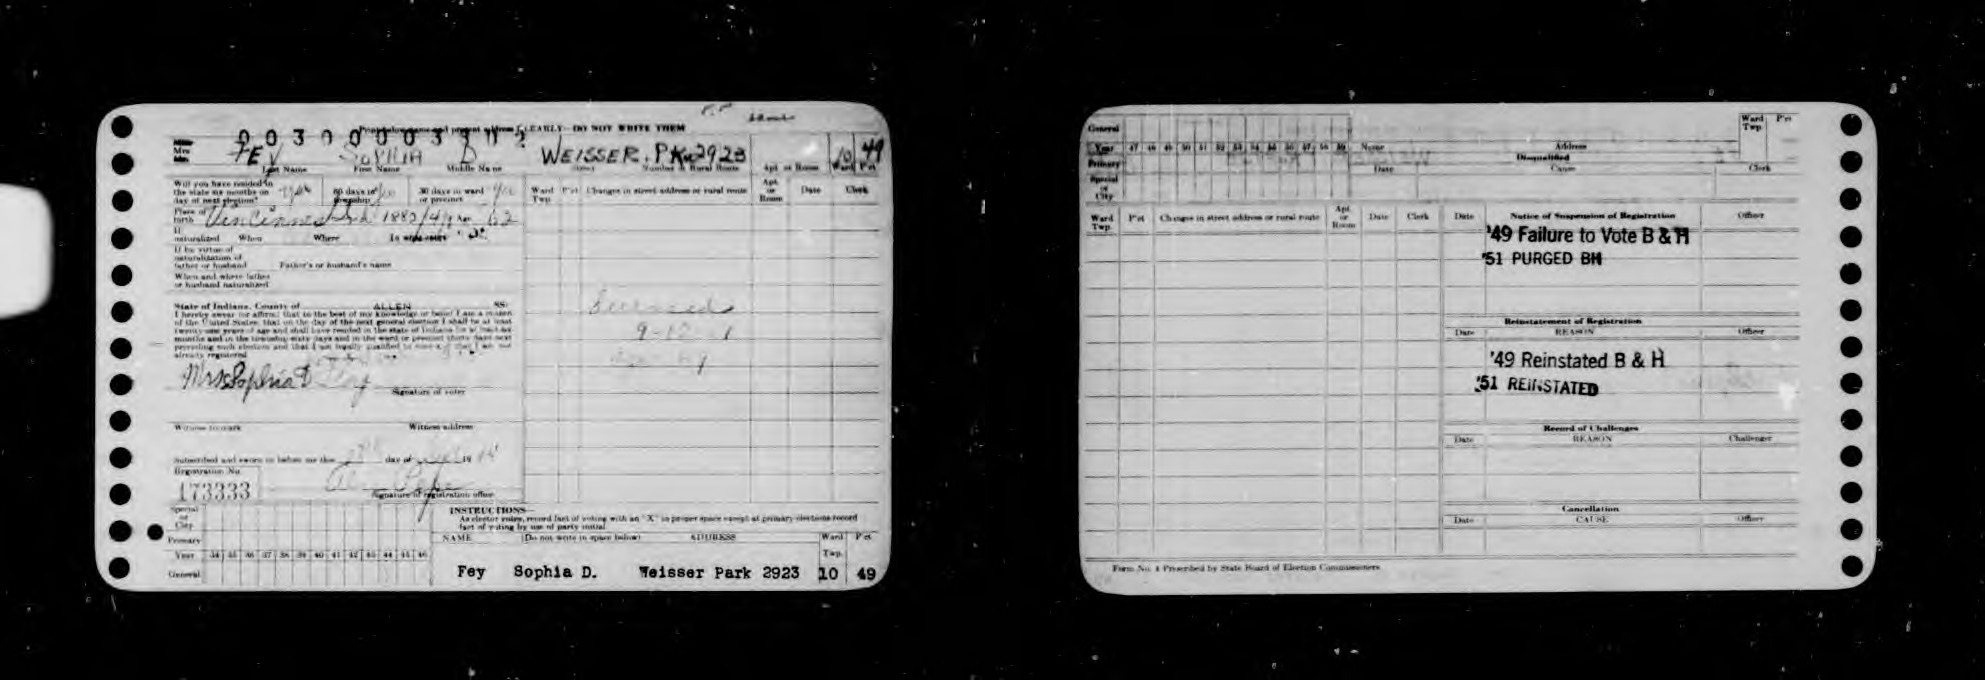 Print below name and present address CLEARLY—DO NOT WRITE THEM
Mrs.
FEY SOPHIA D WEISSER PK 2923 10 49
Last Name First Name Middle Name Number & Rural Route Apt. or Room Ward P'ct
Will you have resided in the state six months on day of next election? yes 60 days in township yes 30 days in ward or precinct yes
Ward Twp. P'ct Changes in street address or rural route Apt. or Room Date Clerk
Place of birth Vincennes Ind 1882 62
If naturalized When Where
If by virtue of naturalization of father or husband Father's or husband's name
When and where father or husband naturalized
State of Indiana, County of ALLEN SS:
I hereby swear (or affirm) that to the best of my knowledge or belief I am a citizen
of the United States; that on the day of the next general election I shall be at least
twenty-one years of age and shall have resided in the state of Indiana for at least six
months and in the township sixty days and in the ward or precinct thirty days next
preceding such election and that I am legally qualified to vote
already registered
Deceased
Mrs Sophia D Fey
Signature of voter
Witness to mark Witness address
Subscribed and sworn to before me this day of 19
Registration No.
173333
Signature of registration officer
INSTRUCTIONS—
As elector votes, record fact of voting with an "X" in proper space except at primary elections record
fact of voting by use of party initial
Special or City
Primary
Year 34 35 36 37 38 39 40 41 42 43 44 45 46
General
NAME (Do not write in space below) ADDRESS Ward Twp. P'ct
Fey Sophia D. Weisser Park 2923 10 49
General
Year 47 48 49 50 51 52 53 54 55 56 57 58 59 Name Address Ward Twp. P'ct
Primary
Special or City
Disqualified
Date Cause Clerk
Ward Twp. P'ct Changes in street address or rural route Apt. or Room Date Clerk
Date Notice of Suspension of Registration Officer
'49 Failure to Vote B & H
'51 PURGED BH
Reinstatement of Registration
Date REASON Officer
'49 Reinstated B & H
'51 REINSTATED
Record of Challenges
Date REASON Challenger
Cancellation
Date CAUSE Officer
Form No. 4 Prescribed by State Board of Election Commissioners